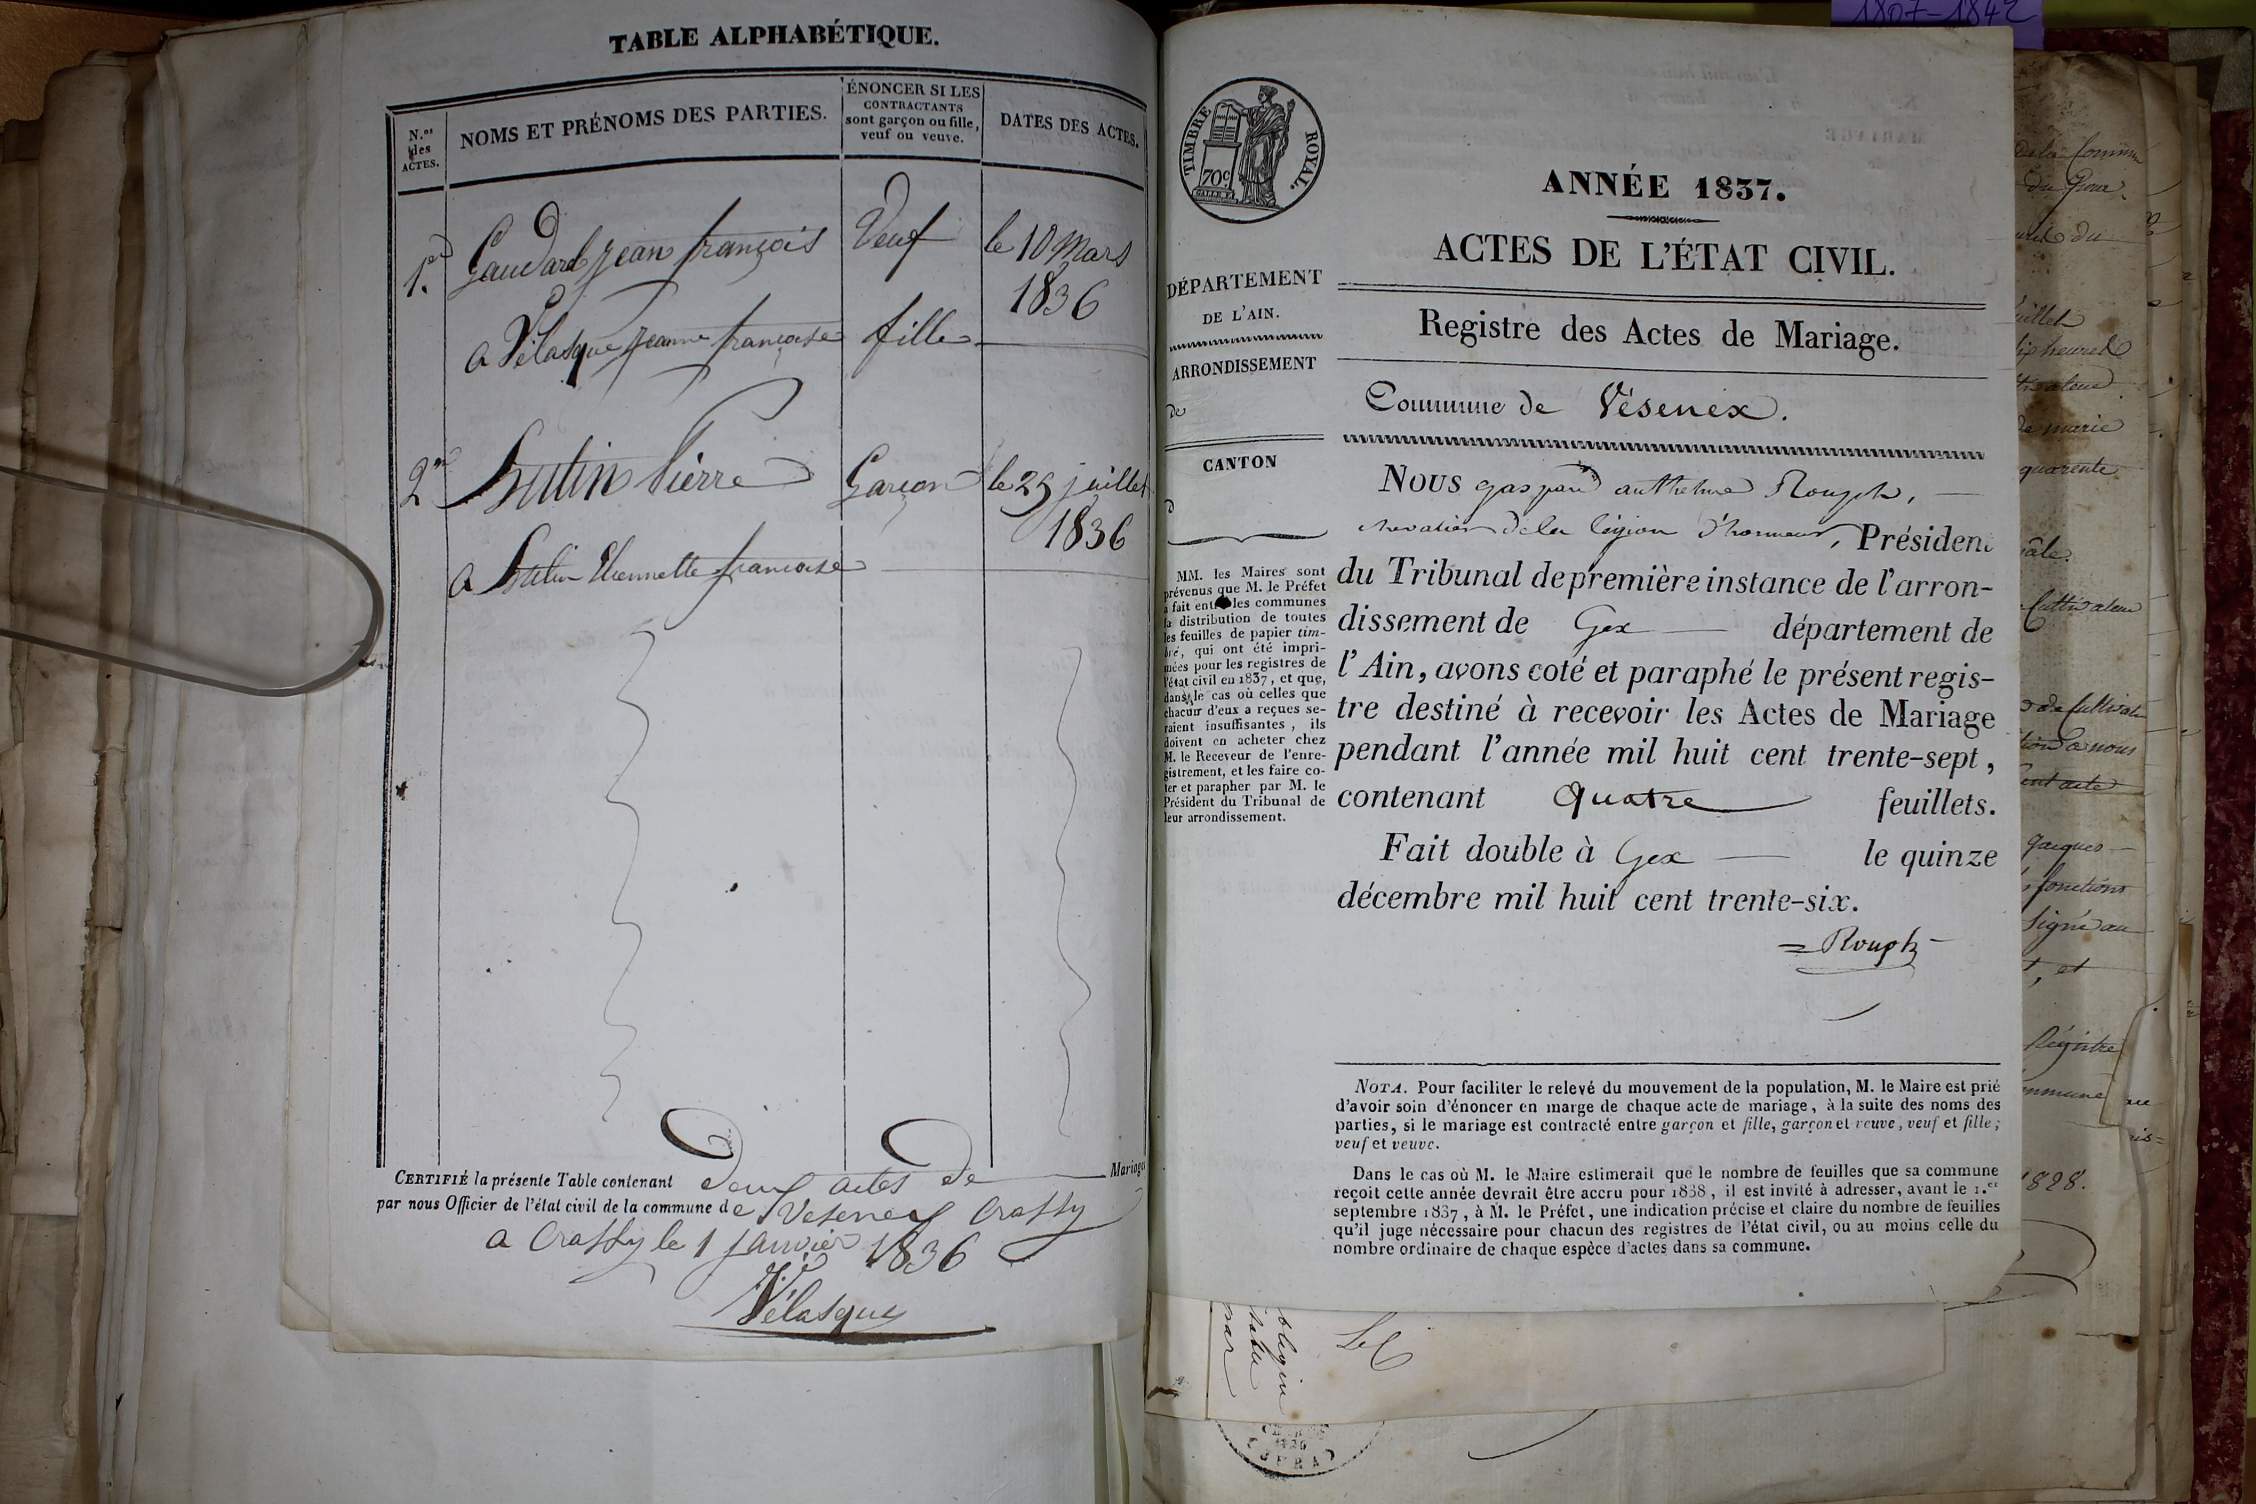 TABLE ALPHABÉTIQUE.
N.os des ACTES.
NOMS ET PRÉNOMS DES PARTIES.
ÉNONCER SI LES
CONTRACTANTS
sont garçon ou fille,
veuf ou veuve.
DATES DES ACTES.
1.er Gaudard jean françois Veuf le 10 Mars
1836
a Vélasque jeanne françoise fille
2me Hutin Pierre Garçon le 25 juillet
1836
a Hutin Etiennette françoise
CERTIFIÉ la présente Table contenant deux actes de Mariages
par nous Officier de l'état civil de la commune de Vesenex Crassy
a Crassy le 1 janvier 1836
Vélasque
1807-1842
TIMBRE ROYAL.
70c
ANNÉE 1837.
ACTES DE L'ÉTAT CIVIL.
DÉPARTEMENT
DE L'AIN.
ARRONDISSEMENT
de
CANTON
d
MM. les Maires sont
prévenus que M. le Préfet
a fait entre les communes
la distribution de toutes
les feuilles de papier tim-
bré, qui ont été impri-
mées pour les registres de
l'état civil en 1837, et que,
dans le cas où celles que
chacun d'eux a reçues se-
raient insuffisantes, ils
doivent en acheter chez
M. le Receveur de l'enre-
gistrement, et les faire co-
ter et parapher par M. le
Président du Tribunal de
leur arrondissement.
Registre des Actes de Mariage.
Commune de Vésenex.
Nous gaspard anthelme Rouph,
chevalier de la légion d'honneur, Président
du Tribunal de première instance de l'arron-
dissement de Gex département de
l'Ain, avons coté et paraphé le présent regis-
tre destiné à recevoir les Actes de Mariage
pendant l'année mil huit cent trente-sept,
contenant quatre feuillets.
Fait double à Gex le quinze
décembre mil huit cent trente-six.
Rouph
NOTA. Pour faciliter le relevé du mouvement de la population, M. le Maire est prié
d'avoir soin d'énoncer en marge de chaque acte de mariage, à la suite des noms des
parties, si le mariage est contracté entre garçon et fille, garçon et veuve, veuf et fille;
veuf et veuve.
Dans le cas où M. le Maire estimerait que le nombre de feuilles que sa commune
reçoit cette année devrait être accru pour 1838, il est invité à adresser, avant le 1.er
septembre 1837, à M. le Préfet, une indication précise et claire du nombre de feuilles
qu'il juge nécessaire pour chacun des registres de l'état civil, ou au moins celle du
nombre ordinaire de chaque espèce d'actes dans sa commune.
de la Commune
du
juillet
dix heures
de marie
quarante
Cultivateur
de Cultivateur
a nous
acte
jacques
fonctions
Signé au
, et
Régistre
1828.